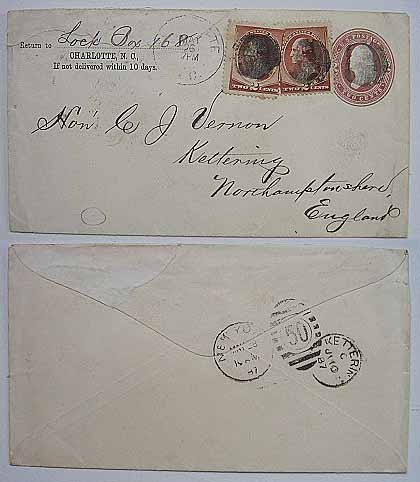 Return to Lock Box 468
CHARLOTTE, N. C.,
If not delivered within 10 days.
PM
TWO CENTS
TWO CENTS
Hon' C J Vernon
Kettering
Northamptonshire,
England
NEW YO
87
50
KETTERIN
C
87